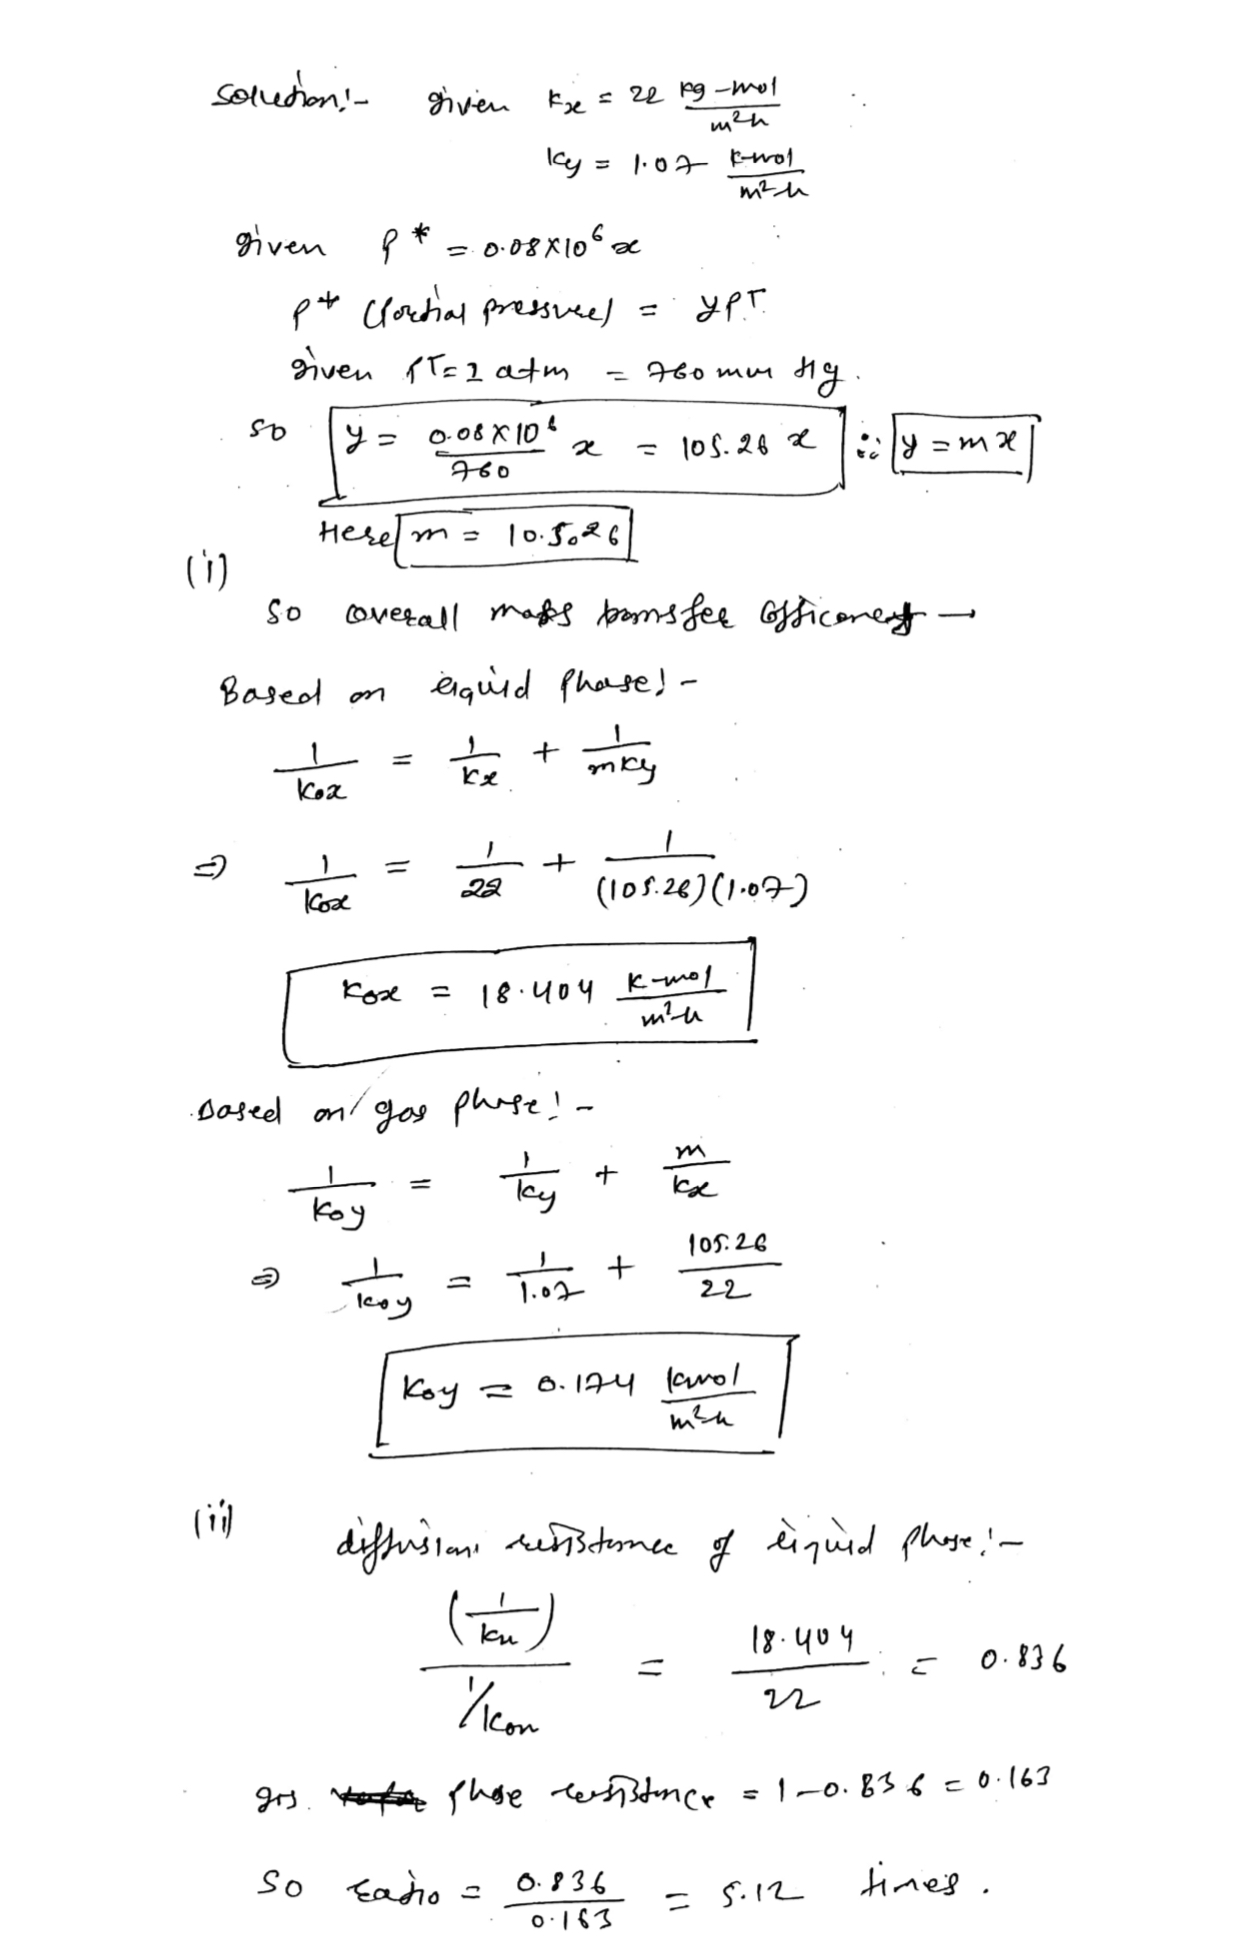 Solution:- given kx = 22 kg-mol/m²h
ky = 1.07 k-mol/m²h
given p* = 0.08×10⁶ x
p* (Partial pressure) = yPT
given PT = 1 atm = 760 mm Hg.
so y = 0.08×10⁶/760 x = 105.26 x ∵ y = mx
Here m = 10.5026
(i)
So overall mass transfer Officient →
Based on liquid phase:-
1/kox = 1/kx + 1/mky
⇒ 1/kox = 1/22 + 1/(105.26)(1.07)
kox = 18.404 k-mol/m²h
Based on gas phase:-
1/koy = 1/ky + m/kx
⇒ 1/koy = 1/1.07 + 105.26/22
koy = 0.174 kmol/m²h
(ii)
diffusion resistance of liquid phase:-
(1/kx)/(1/kox) = 18.404/22 = 0.836
gas phase resistance = 1-0.836 = 0.163
So ratio = 0.836/0.163 = 5.12 times.